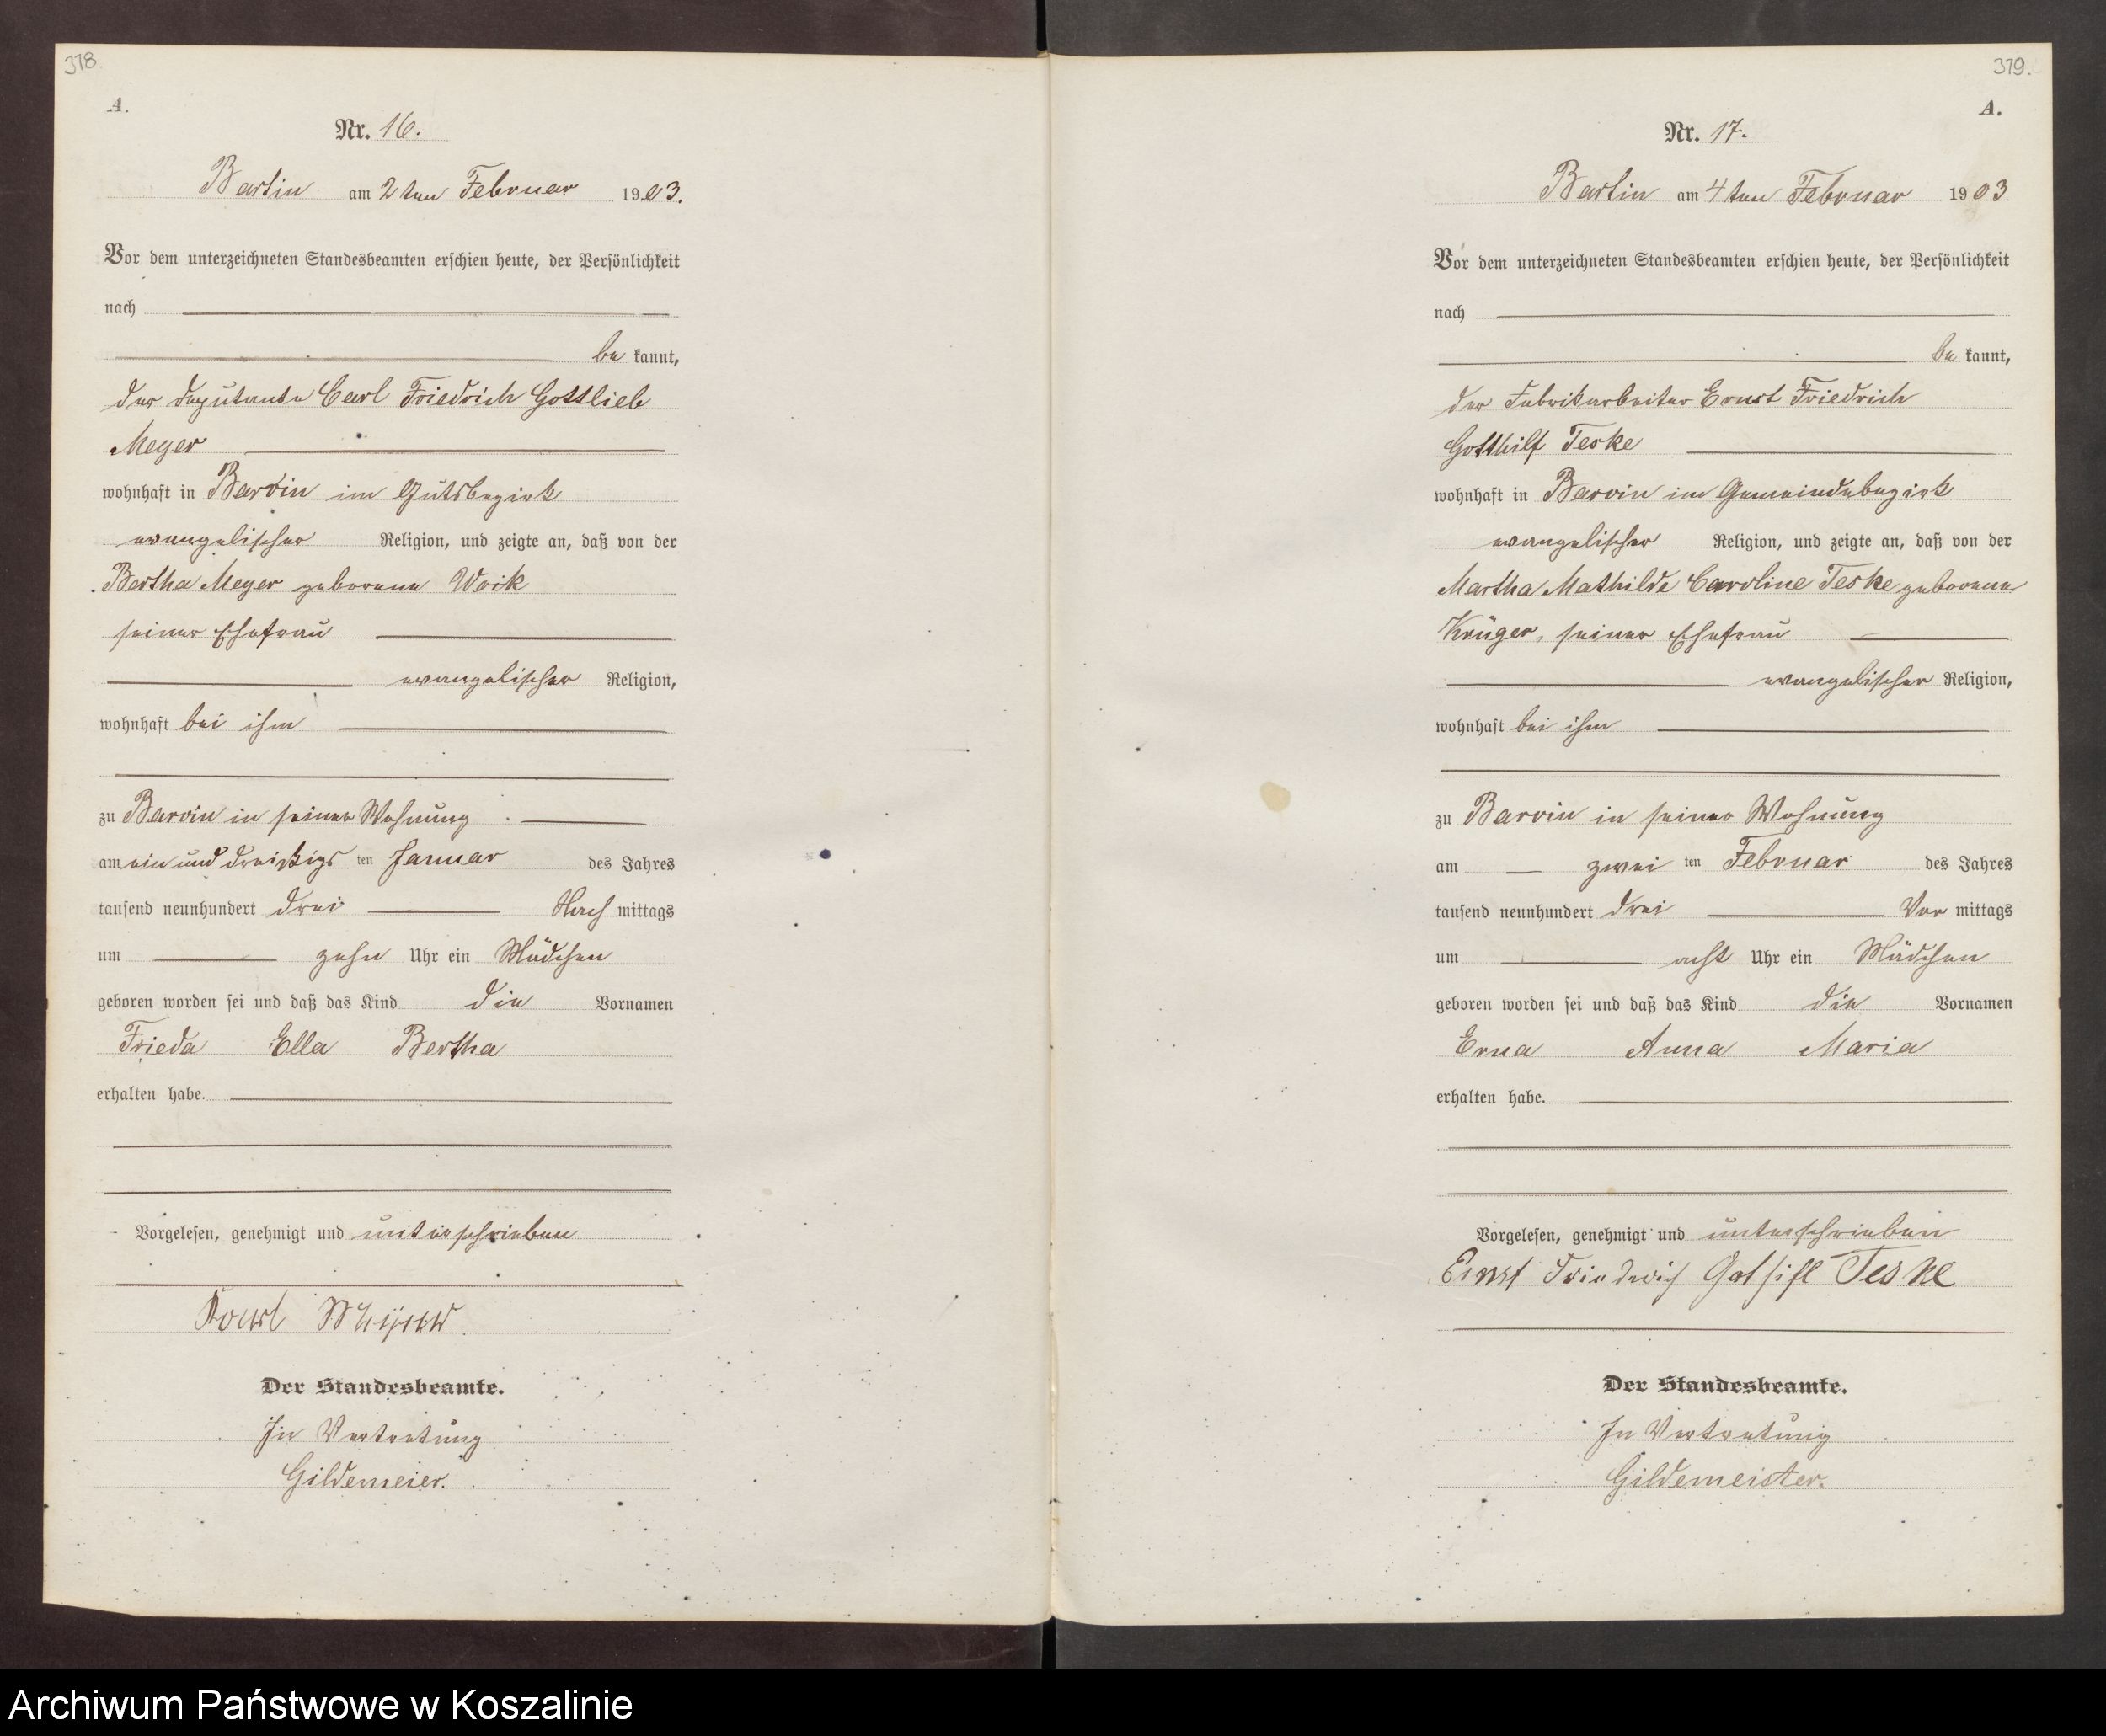 378.
A.
Nr. 16.
Bartin am 2ten Februar 1903.
Vor dem unterzeichneten Standesbeamten erschien heute, der Persönlichkeit
nach
be kannt,
der Deputante Carl Friedrich Gottlieb
Meyer
wohnhaft in Barvin im Gutsbezirk
evangelischer Religion, und zeigte an, daß von der
Bertha Meyer geborene Woik
seiner Ehefrau
evangelischer Religion,
wohnhaft bei ihm
zu Barvin in seiner Wohnung
am ein und dreißigs ten Januar des Jahres
tausend neunhundert drei Nach mittags
um zehn Uhr ein Mädchen
geboren worden sei und daß das Kind die Vornamen
Frieda Ella Bertha
erhalten habe.
Vorgelesen, genehmigt und unterschrieben
Karl
Der Standesbeamte.
In Vertretung
Gildemeier.
379.
A.
Nr. 17.
Bartin am 4ten Februar 1903
Vor dem unterzeichneten Standesbeamten erschien heute, der Persönlichkeit
nach
be kannt,
der Fabrikarbeiter Ernst Friedrich
Gotthilf Teske
wohnhaft in Barvin im Gemeindebezirk
evangelischer Religion, und zeigte an, daß von der
Martha Mathilde Caroline Teske geborene
Krüger, seiner Ehefrau
evangelischer Religion,
wohnhaft bei ihm
zu Barvin in seiner Wohnung
am zwei ten Februar des Jahres
tausend neunhundert drei Vor mittags
um acht Uhr ein Mädchen
geboren worden sei und daß das Kind die Vornamen
Erna Anna Maria
erhalten habe.
Vorgelesen, genehmigt und unterschrieben
Ernst Friedrich Gothilf Teske
Der Standesbeamte.
In Vertretung
Gildemeister.
Archiwum Państwowe w Koszalinie